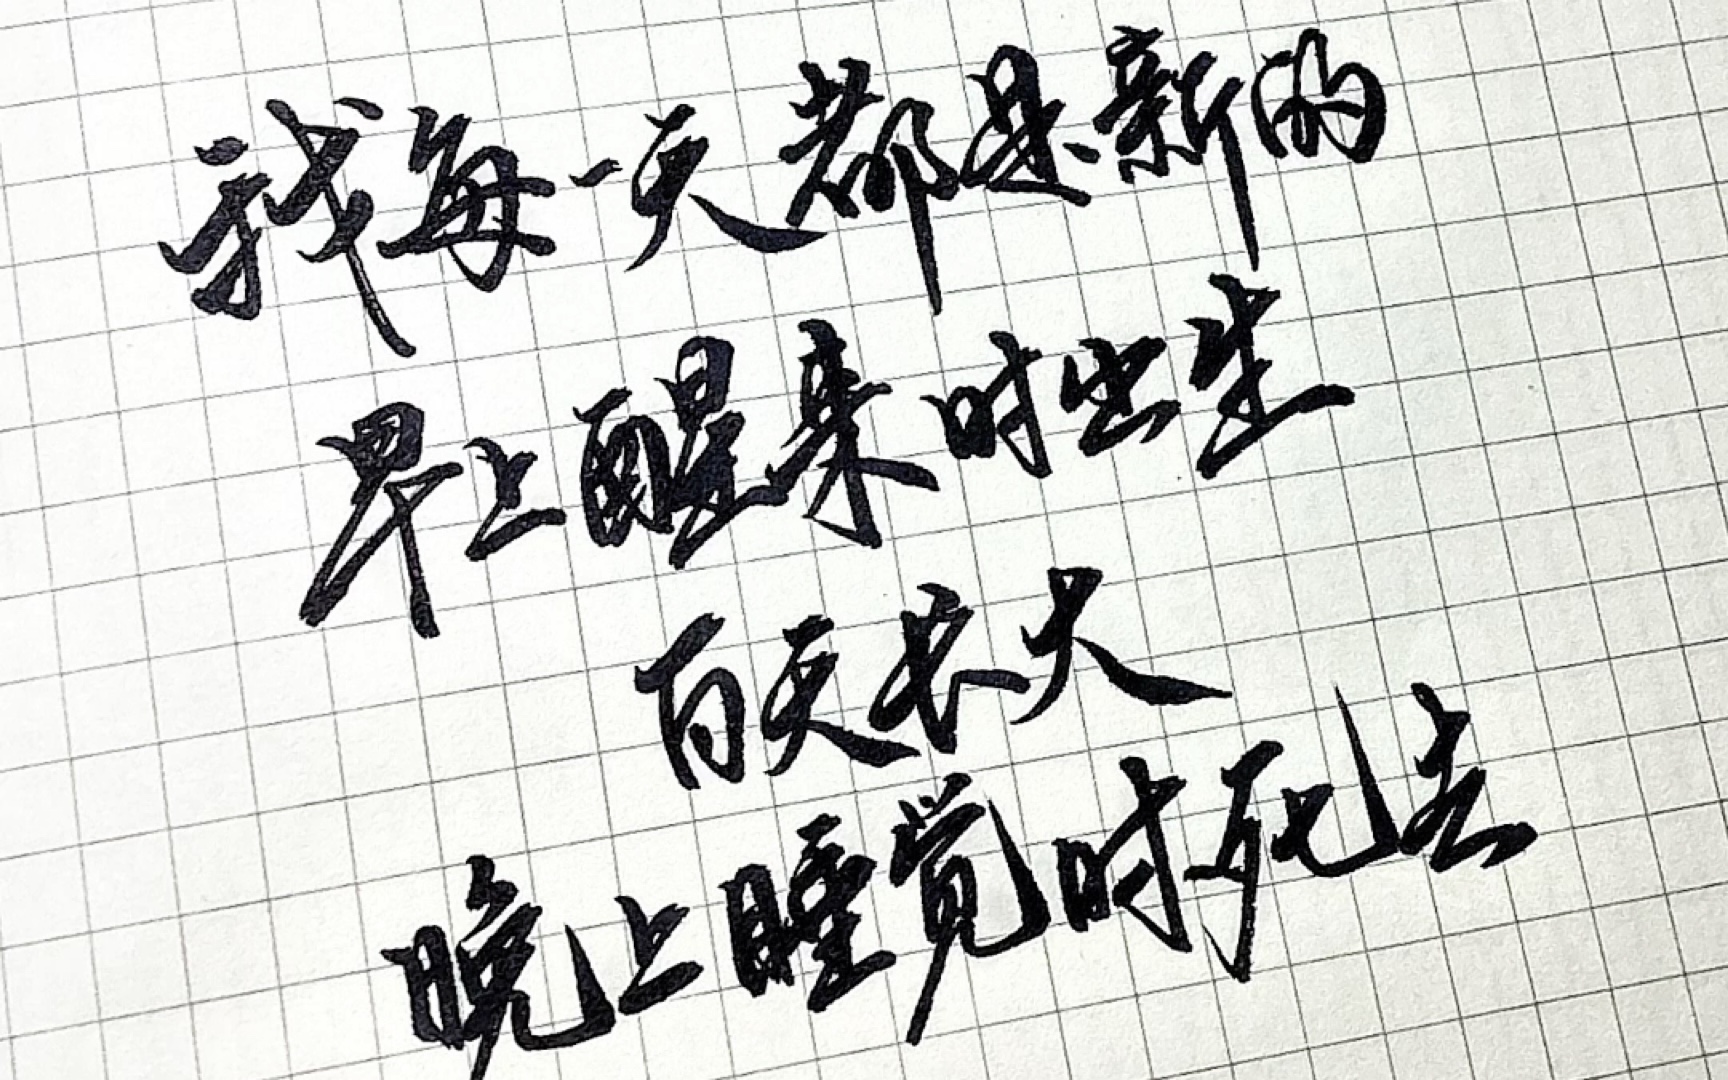 我每一天都是新的
早上醒来时出生
白天长大
晚上睡觉时死去